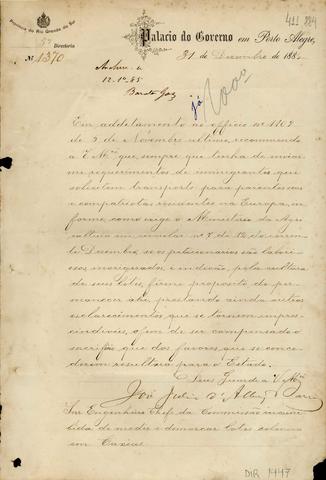 411 884
Provincia do Rio Grande do Sul
Directoria
Nº 1370
Palacio do Governo em Porto Alegre,
31 de Dezembro de 188
Archive-se
12-1º-85
Barata Goz
já
Em additamento ao officio nº 1102
de 9 de Novembro ultimo, recommendo
a V. Mce que, sempre que tenha de enviar-
me requerimentos de immigrantes que
solicitem transporte para parentes seus
e compatriotas residentes na Europa, in
forme, como exige o Ministerio da Agri
cultura em circular nº 7 de 12 do corren
te Dezembro, se os peticionarios são labori-
osos, morigerados, e indicão, pela cultura
de seus lotes, firme proposito de per-
manecer ahi, prestando ainda outros
esclarecimentos que se tornem impres-
cindiveis, afim de ser compensado o
sacrificio que dos favores que se conce
derem resultará para o Estado.
Deus Guarde a V. Mce
José Julio d'Albuq. Barros
Snr. Engenheiro Chefe da Commissão incum
bida de medir e demarcar lotes coloniaes
em Caxias.
DIR 1447